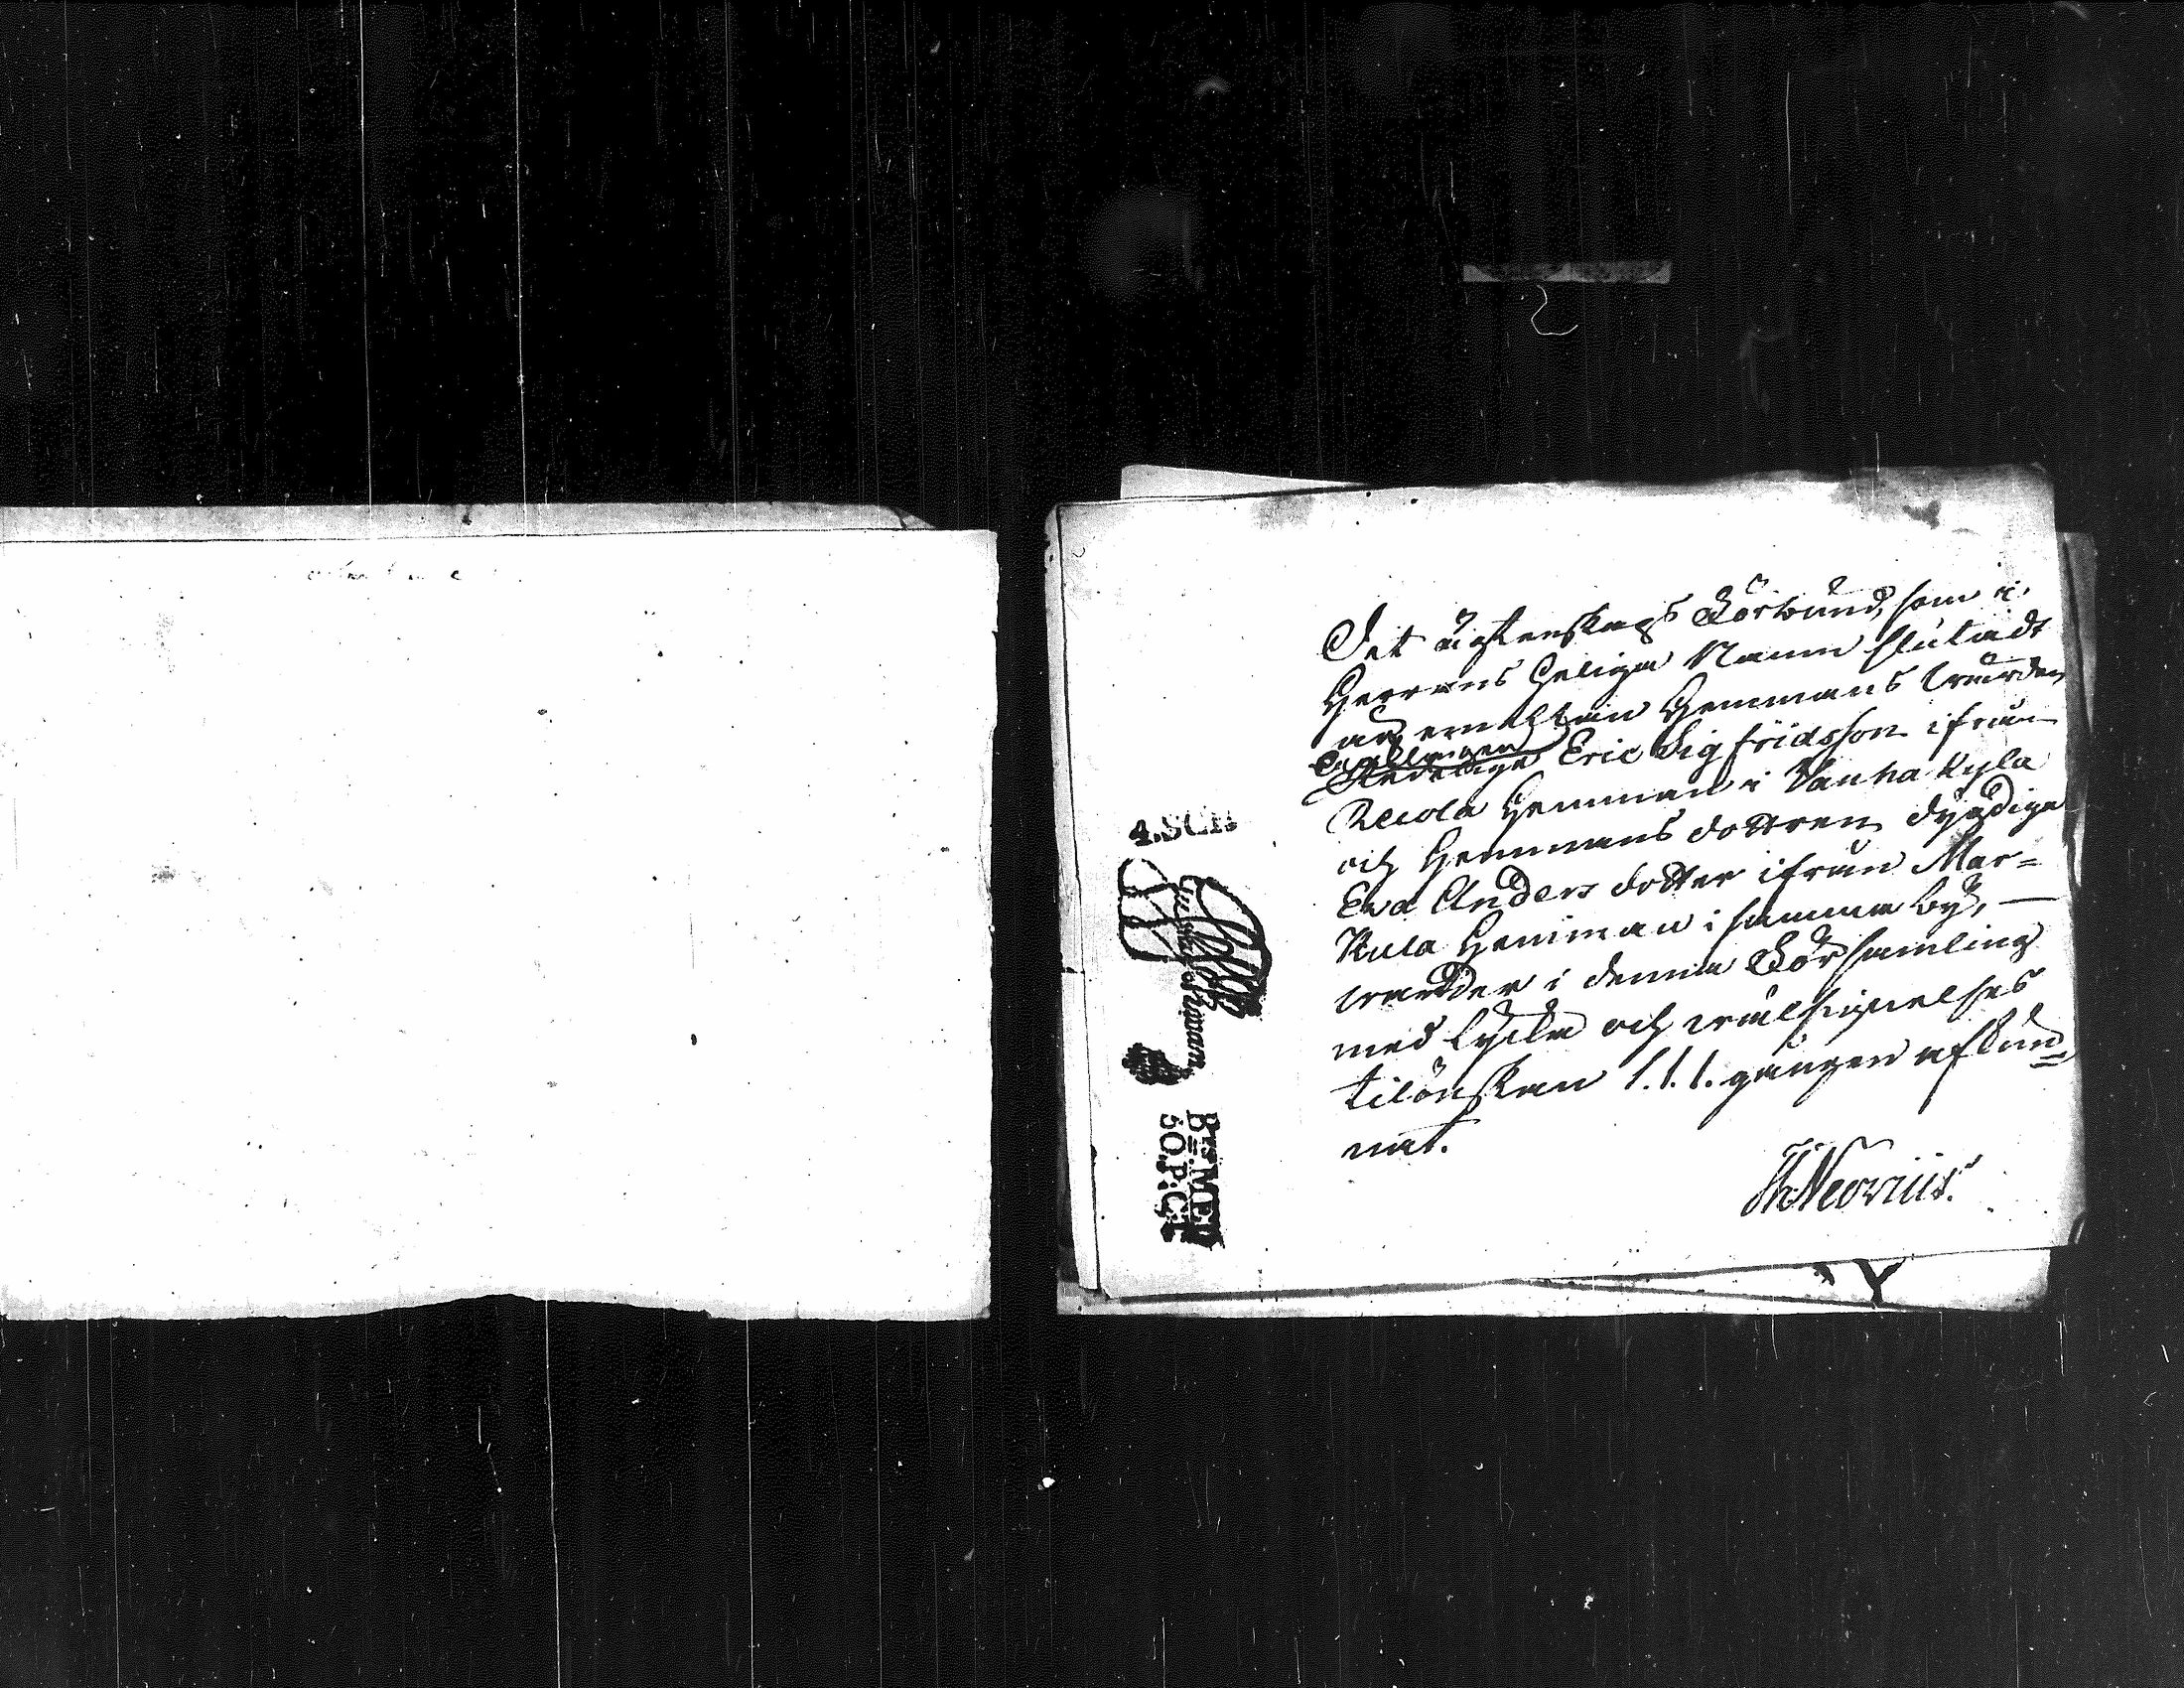 Det ächtenskaps Förbund, som i
Herrans heliga Namn slutadt
är emellan Hemmans
Eric Sigfridsson ifrån
Reiola Hemman i Vanha Kyla
och Hemmans dottren dygdiga
Eva Anders dotter ifrån Mar=
Kula Hemman i samma by, —
warder i denna Församling
med lycko och wälsignelses
tilönskan 1. 1. 1. gången afkun=
nat.
Neovius.
4. SCH
50. P. C